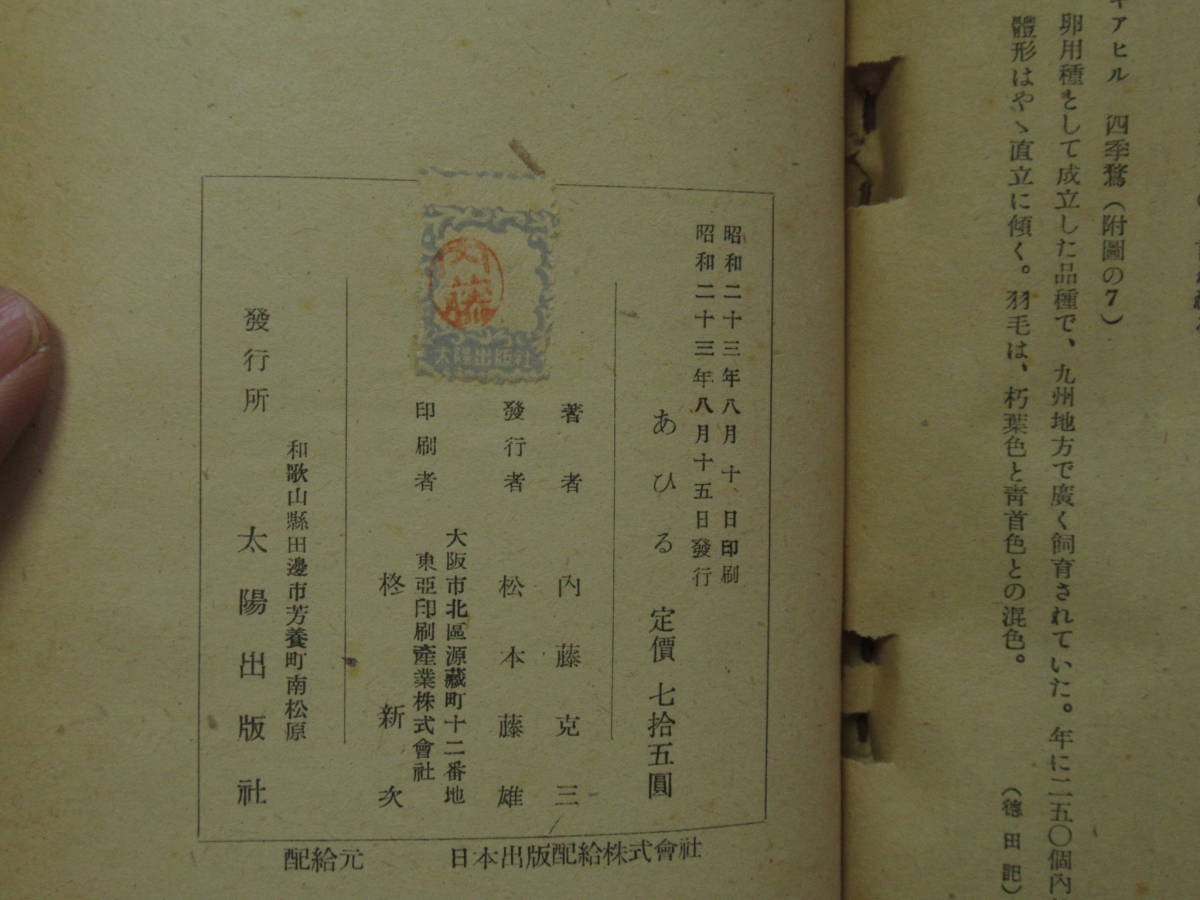 キアヒル 四季鶩(附圖の7)
卵用種として成立した品種で、九州地方で廣く飼育されていた。年に二五〇個內
體形はやゝ直立に傾く。羽毛は、朽葉色と靑首色との混色。
(德田記)
昭和二十三年八月十日印刷
昭和二十三年八月十五日發行
あひる 定價 七拾五圓
著者 內藤克三
發行者 松本藤雄
大阪市北區源藏町十二番地
印刷者 東亞印刷產業株式會社
柊新次
內藤
太陽出版社
和歌山縣田邊市芳養町南松原
發行所 太陽出版社
配給元 日本出版配給株式會社